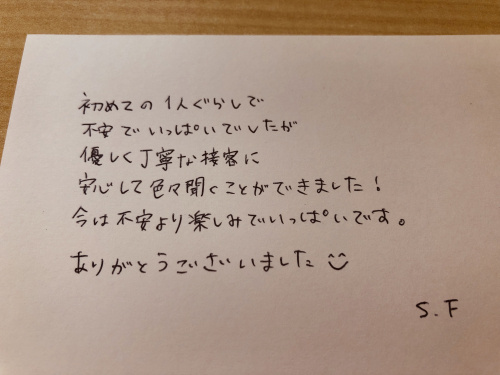 初めての1人ぐらしで
不安でいっぱいでしたが
優しく丁寧な接客に
安心して色々聞くことができました!
今は不安より楽しみでいっぱいです。
ありがとうございました
S.F